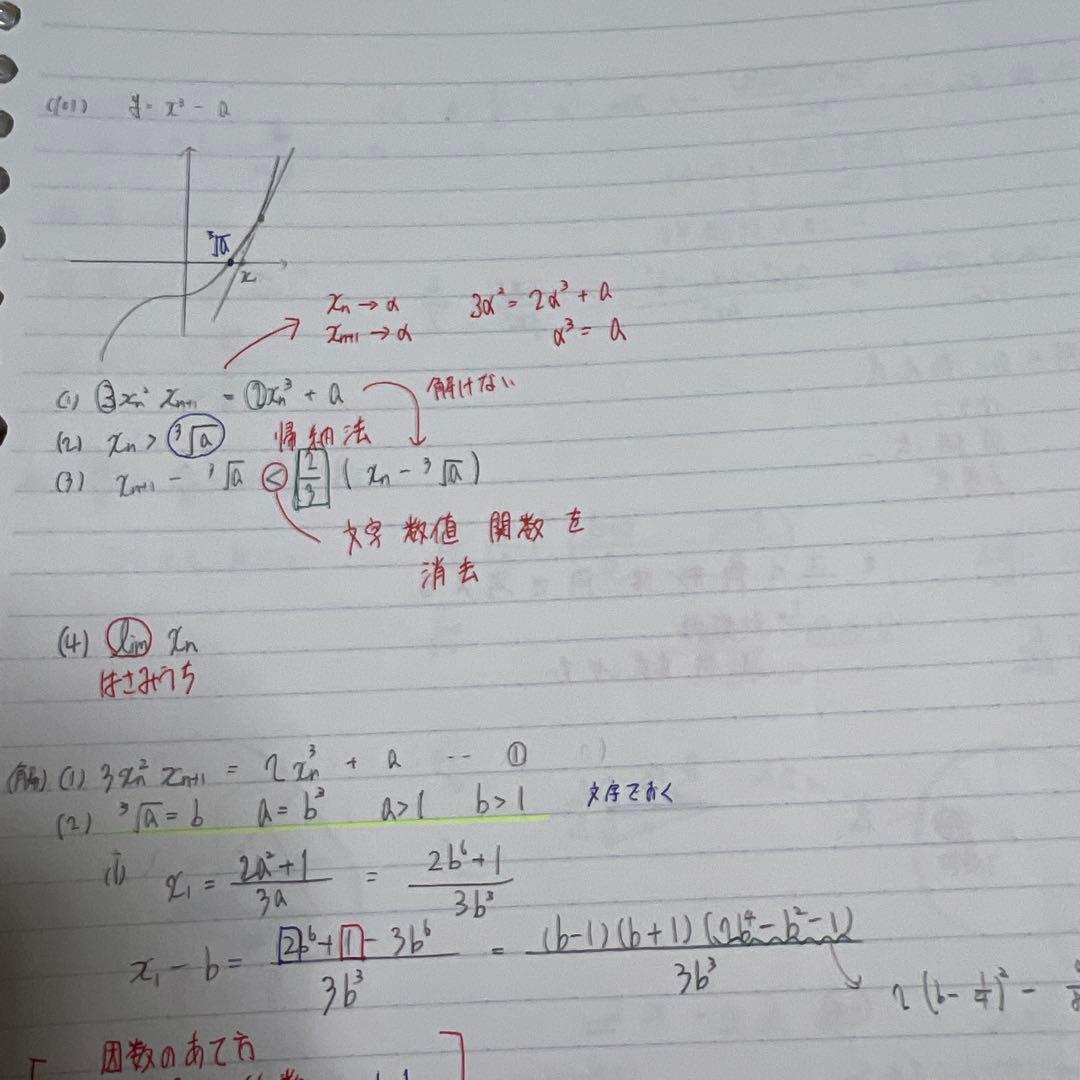 (101) y = x³ - a
³√a
x
xₙ → α 3α² = 2α³ + a
xₙ₊₁ → α α³ = a
(1) 3xₙ² xₙ₊₁ = 2xₙ³ + a 解けない
(2) xₙ > ³√a 帰納法
(3) xₙ₊₁ - ³√a < 2/3 (xₙ - ³√a)
文字 数値 関数 を
消去
(4) lim xₙ
はさみうち
(解) (1) 3xₙ² xₙ₊₁ = 2xₙ³ + a … ①
(2) ³√a = b a = b³ a > 1 b > 1 文字でおく
(i) x₁ = (2a²+1)/(3a) = (2b⁶+1)/(3b³)
x₁ - b = (2b⁶+1-3b⁶)/(3b³) = (b-1)(b+1)(2b⁴-b²-1)/(3b³)
2(b-1/4)² -
因数のあて方